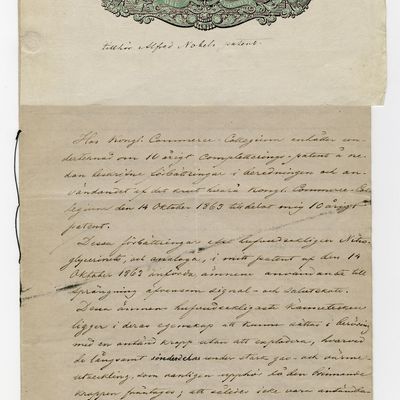 tillhör Alfred Nobels patent.
Hos Kongl. Commerce-Collegium anhåller un-
dertecknad om 10 årigt Completterings-patent å ne-
dan beskrifne förbättringar i beredningen och an-
vändandet af det krut hvarå Kongl. Commerce-Col-
legium den 14 Oktober 1863 tilldelat mig 10 årigt
patent.
Dessa förbättringar afse hufvudsakligen Nitro-
glycerinets och analoga, i mitt patent af den 14
Oktober 1863 anförda ämnens användande till
sprängning äfvensom signal- och salutskott.
Dessa ämnens hufvudsakligaste kännetecken
ligger i deras egenskap att kunna sättas i beröring
med en antänd kropp utan att explodera, hvarvid
de långsamt sönderdelas under stark gas- och värme-
utveckling, som vanligen upphör då den brinnande
kroppen fråntages; att således icke vara antändba-